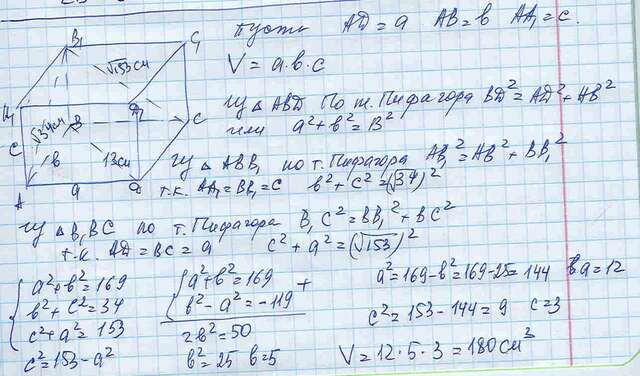 Пусть AD = a AB = b AA₁ = c.
V = a·b·c
Из △ ABD По т. Пифагора BD² = AD² + AB²
или a² + b² = B²
Из △ ABB₁ по т. Пифагора AB₁² = AB² + BB₁²
т.к. AA₁ = BB₁ = c b² + c² = (√34)²
Из △ B₁BC по т. Пифагора B₁C² = BB₁² + BC²
т.к. AD = BC = a c² + a² = (√153)²
B₁ C₁
√153 см
D₁
√34 см B C
C
b 13 см
A a D
a² + b² = 169
b² + c² = 34
c² + a² = 153
c² = 153 - a²
a² + b² = 169 +
b² - a² = -119
2b² = 50
b² = 25 b = 5
a² = 169 - b² = 169 - 25 = 144 a = 12
c² = 153 - 144 = 9 c = 3
V = 12 · 5 · 3 = 180 см³